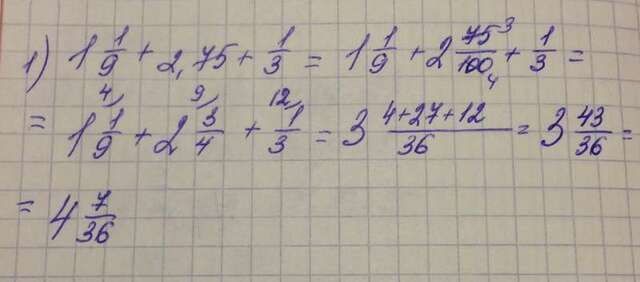 1) 1 1/9 + 2,75 + 1/3 = 1 1/9 + 2 75³/100₄ + 1/3 =
4 9 12
= 1 1/9 + 2 3/4 + 1/3 = 3 (4+27+12)/36 = 3 43/36 =
= 4 7/36